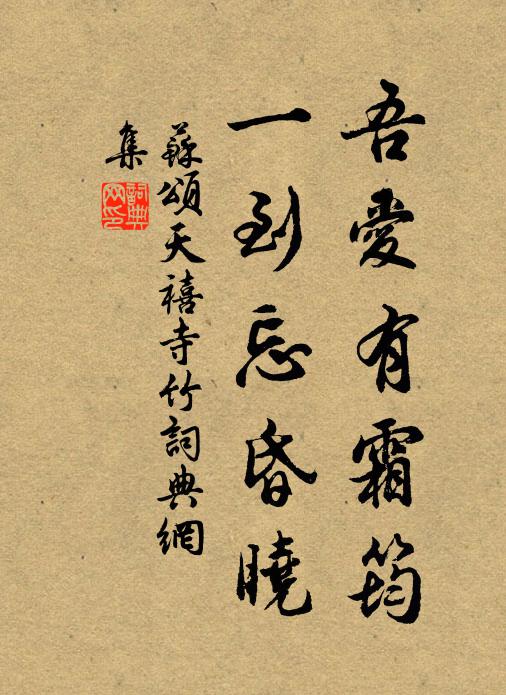 吾愛有霜筠
一到忘昏曉
蘇頌天禧寺竹詞典網
集
詞典
网印